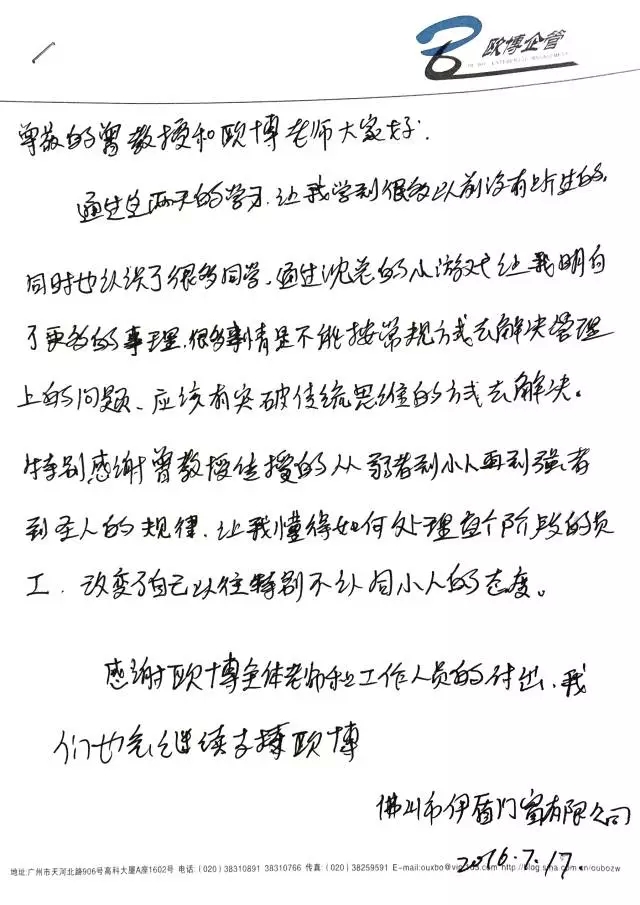 欧博企管
尊敬的曾教授和欧博老师大家好.
通过这两天的学习,让我学到很多以前没有的,
同时也认识了很多同学。通过沈总的小游戏让我明白
了更多的事理,很多事情是不能按常规方式去解决管理
上的问题、应该有突破传统思维的方式去解决。
特别感谢曾教授传授的从弱者到小人再到强者
到圣人的规律,让我懂得如何处理每个阶段的员
工.改变了自己以往特别不认同小人的态度。
感谢欧博全体老师和工作人员的付出,我
们也会继续支持欧博
佛山市伊盾门窗有限公司
2016.7.17.
地址:广州市天河北路906号高科大厦A座1602号 电话:(020)38310891 38310766 传真:(020)38259591 E-mail:ouxbo@vip.163.com http://blog.sina.com.cn/oubozw